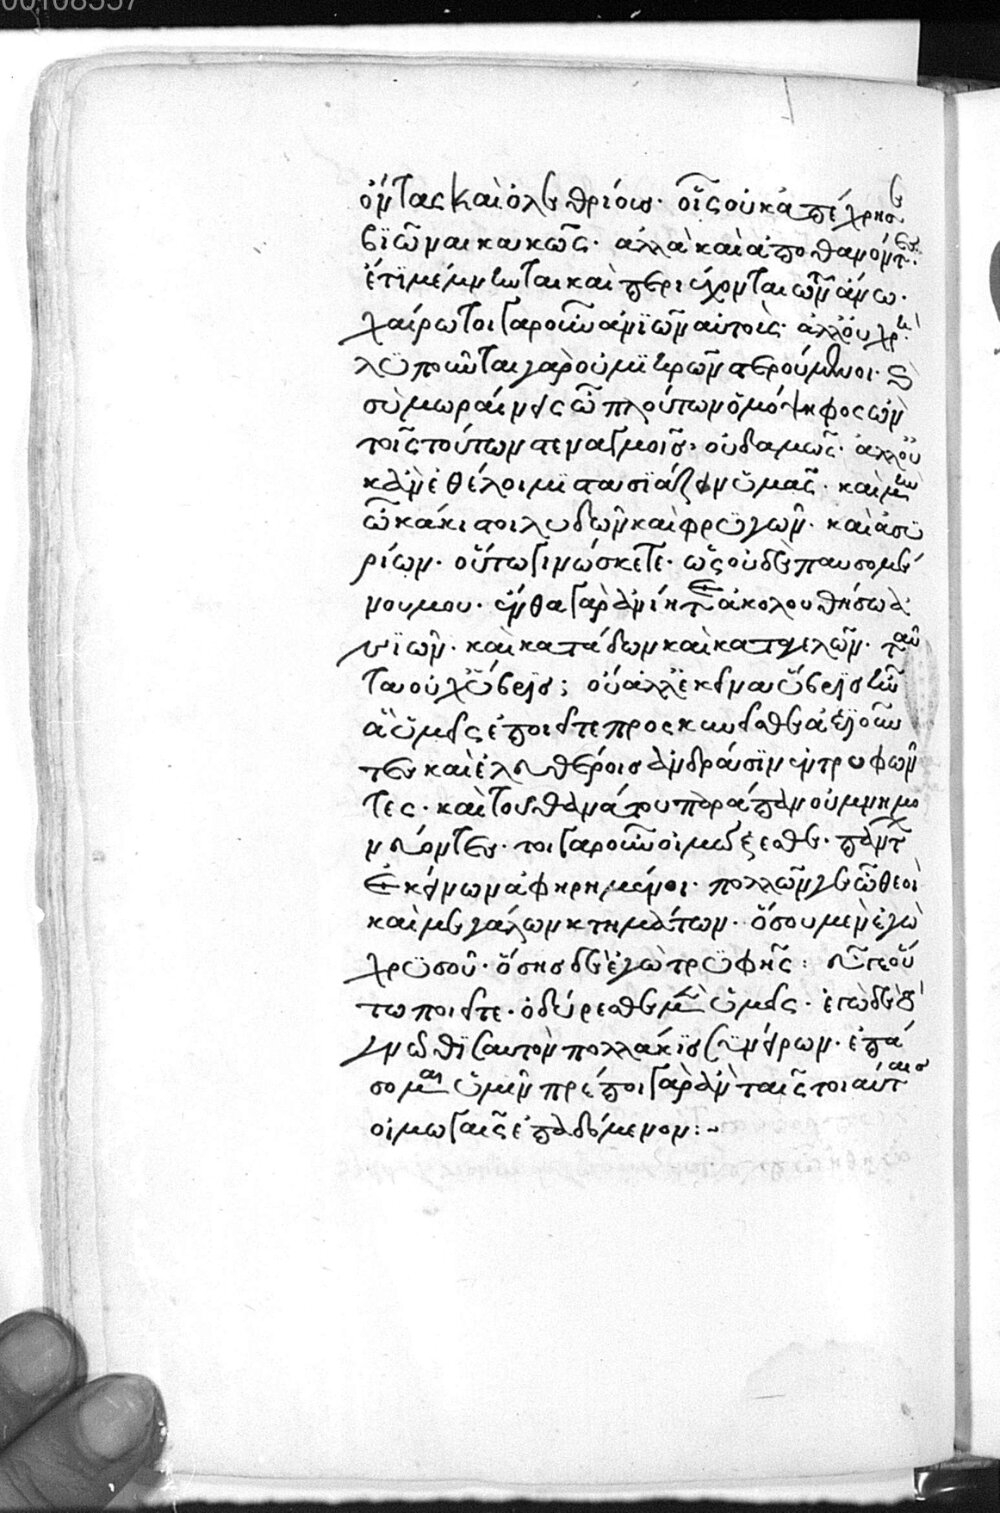 00108557
όντας καὶ ὀλεθρίους. οἷς οὐκ ἀπέχρησε
βιῶναι κακῶς. ἀλλὰ καὶ ἀποθανόντες
ἔτι μέμνηνται καὶ περιέχονται τῶν ἄνω.
χαίρω τοιγαροῦν ἀνιῶν αὐτοὺς. ἀλλ' οὐ χρὴ
λυποῦνται γὰρ οὐ μικρῶν στερούμενοι. καὶ
σὺ μωραίνεις ὦ πλούτων ὁμόψηφος ὢν
τοῖς τούτων στεναγμοῖς. οὐδαμῶς. ἀλλ' οὐ
κἂν ἐθέλοιμι στασϊάζειν ὑμᾶς. καὶ μὴν
ὦ κάκιστοι λυδῶν καὶ φρυγῶν. καὶ ἀσσυ
ρίων. οὕτω γινώσκετε. ὡς οὐδὲ παυσομέ
νου μου. ἔνθα γὰρ ἂν ἴητε ἀκολουθήσω ἀ
νιῶν. καὶ κατάδων καὶ καταγελῶν. ταῦ
τα οὐχ ὕβρις; οὐκ ἀλλ' ἐκεῖνα ὕβρις ἦν
ἃ ὑμεῖς ἐποιεῖτε προσκυνεῖσθαι ἀξιοῦν
τες καὶ ἐλευθέροις ἀνδράσιν ἐντρυφῶν
τες. καὶ τοῦ θανάτου παράπαν οὐ μνημο
νεύοντες. τοιγαροῦν οἰμώξεσθε. πάντων
ἐκείνων ἀφῃρημένοι. πολλῶν γε ὦ θεοὶ
καὶ μεγάλων κτημάτων. ὅσου μὲν ἐγὼ
χρυσοῦ. ὅσης δὲ ἐγὼ τρυφῆς: εὖγε οὕ
τω ποιεῖτε. ὀδύρεσθε μὲν ὑμεῖς. ἐγὼ δὲ τὸ
γνῶθι σαυτὸν πολλάκις συνείρων. ἐπά
σομαι ὑμῖν πρέποι γὰρ ἂν ταῖς τοιαύταις
οἰμωγαῖς ἐπαδόμενον:~